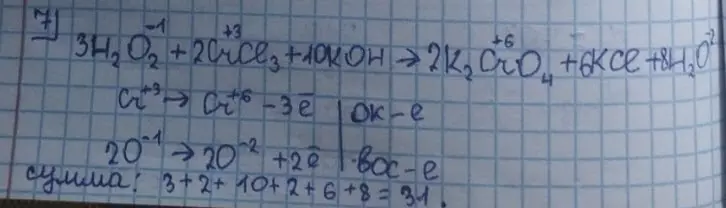 7) 3H₂O₂⁻¹ + 2Cr⁺³Cl₃ + 10KOH → 2K₂Cr⁺⁶O₄ + 6KCl + 8H₂O⁻²
Cr⁺³ → Cr⁺⁶ - 3ē | ок-е
2O⁻¹ → 2O⁻² + 2ē | вос-е
сумма: 3+2+10+2+6+8=31.